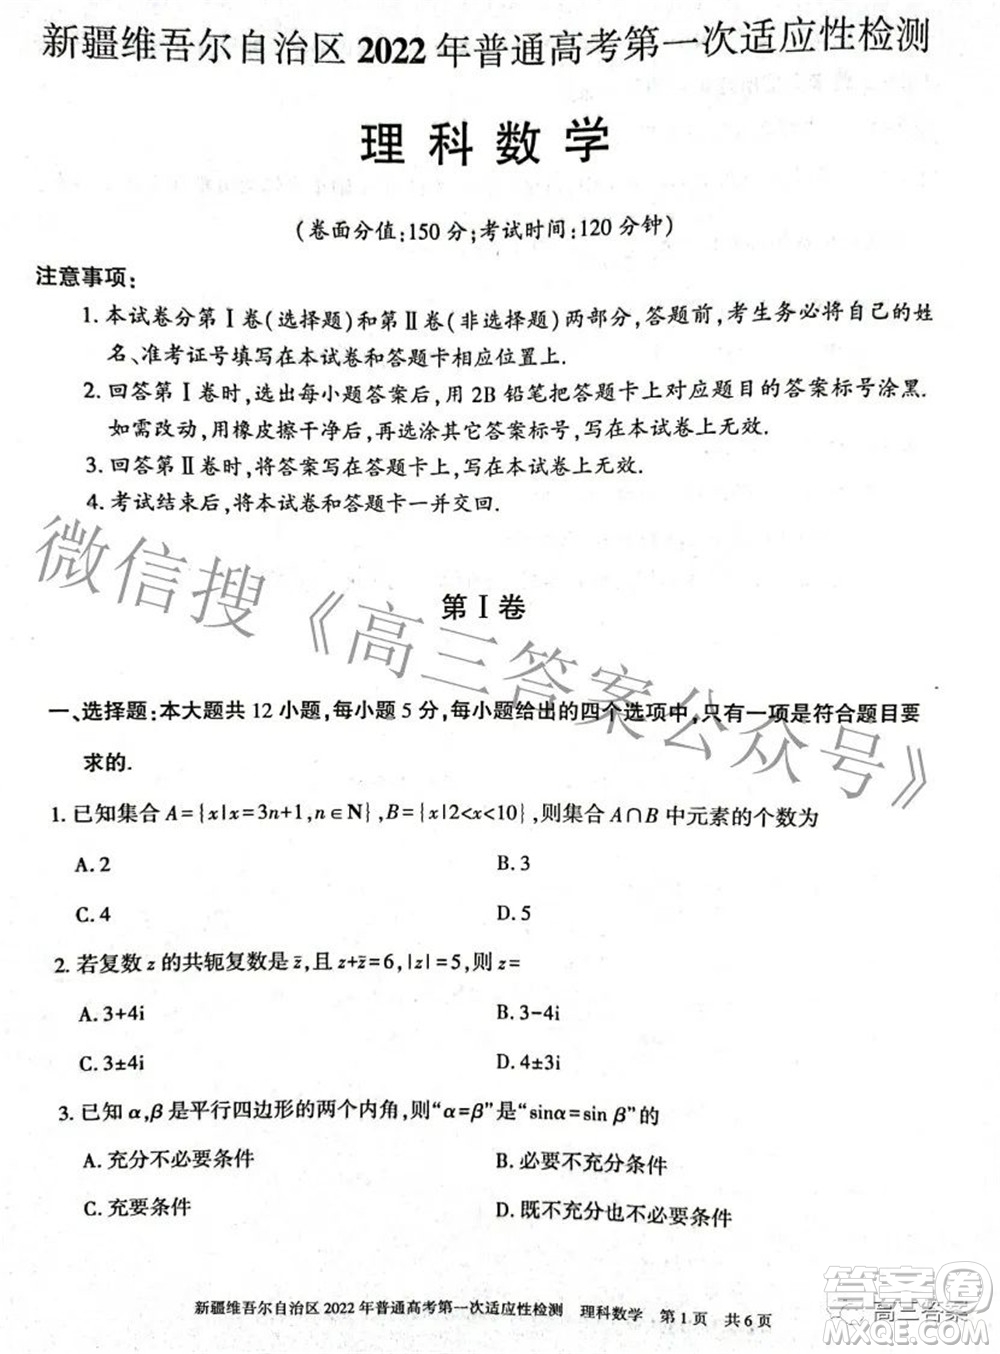 新疆维吾尔自治区 2022 年普通高考第一次适应性检测
理科数学
(卷面分值:150分;考试时间:120分钟)
注意事项:
1.本试卷分第Ⅰ卷(选择题)和第Ⅱ卷(非选择题)两部分,答题前,考生务必将自己的姓
名、准考证号填写在本试卷和答题卡相应位置上.
2.回答第Ⅰ卷时,选出每小题答案后,用2B铅笔把答题卡上对应题目的答案标号涂黑.
如需改动,用橡皮擦干净后,再选涂其它答案标号,写在本试卷上无效.
3.回答第Ⅱ卷时,将答案写在答题卡上,写在本试卷上无效.
4.考试结束后,将本试卷和答题卡一并交回.
微信搜《高三答案公众号》
第Ⅰ卷
一、选择题:本大题共12小题,每小题5分,每小题给出的四个选项中,只有一项是符合题目要
求的.
1.已知集合A={x|x=3n+1,n∈N},B={x|2<x<10},则集合A∩B中元素的个数为
A.2 B.3
C.4 D.5
2.若复数z的共轭复数是z̄,且z+z̄=6,|z|=5,则z=
A.3+4i B.3-4i
C.3±4i D.4±3i
3.已知α,β是平行四边形的两个内角,则“α=β”是“sinα=sin β”的
A.充分不必要条件 B.必要不充分条件
C.充要条件 D.既不充分也不必要条件
新疆维吾尔自治区2022年普通高考第一次适应性检测 理科数学 第1页 共6页
高三答案
答案圈
MXQE.COM